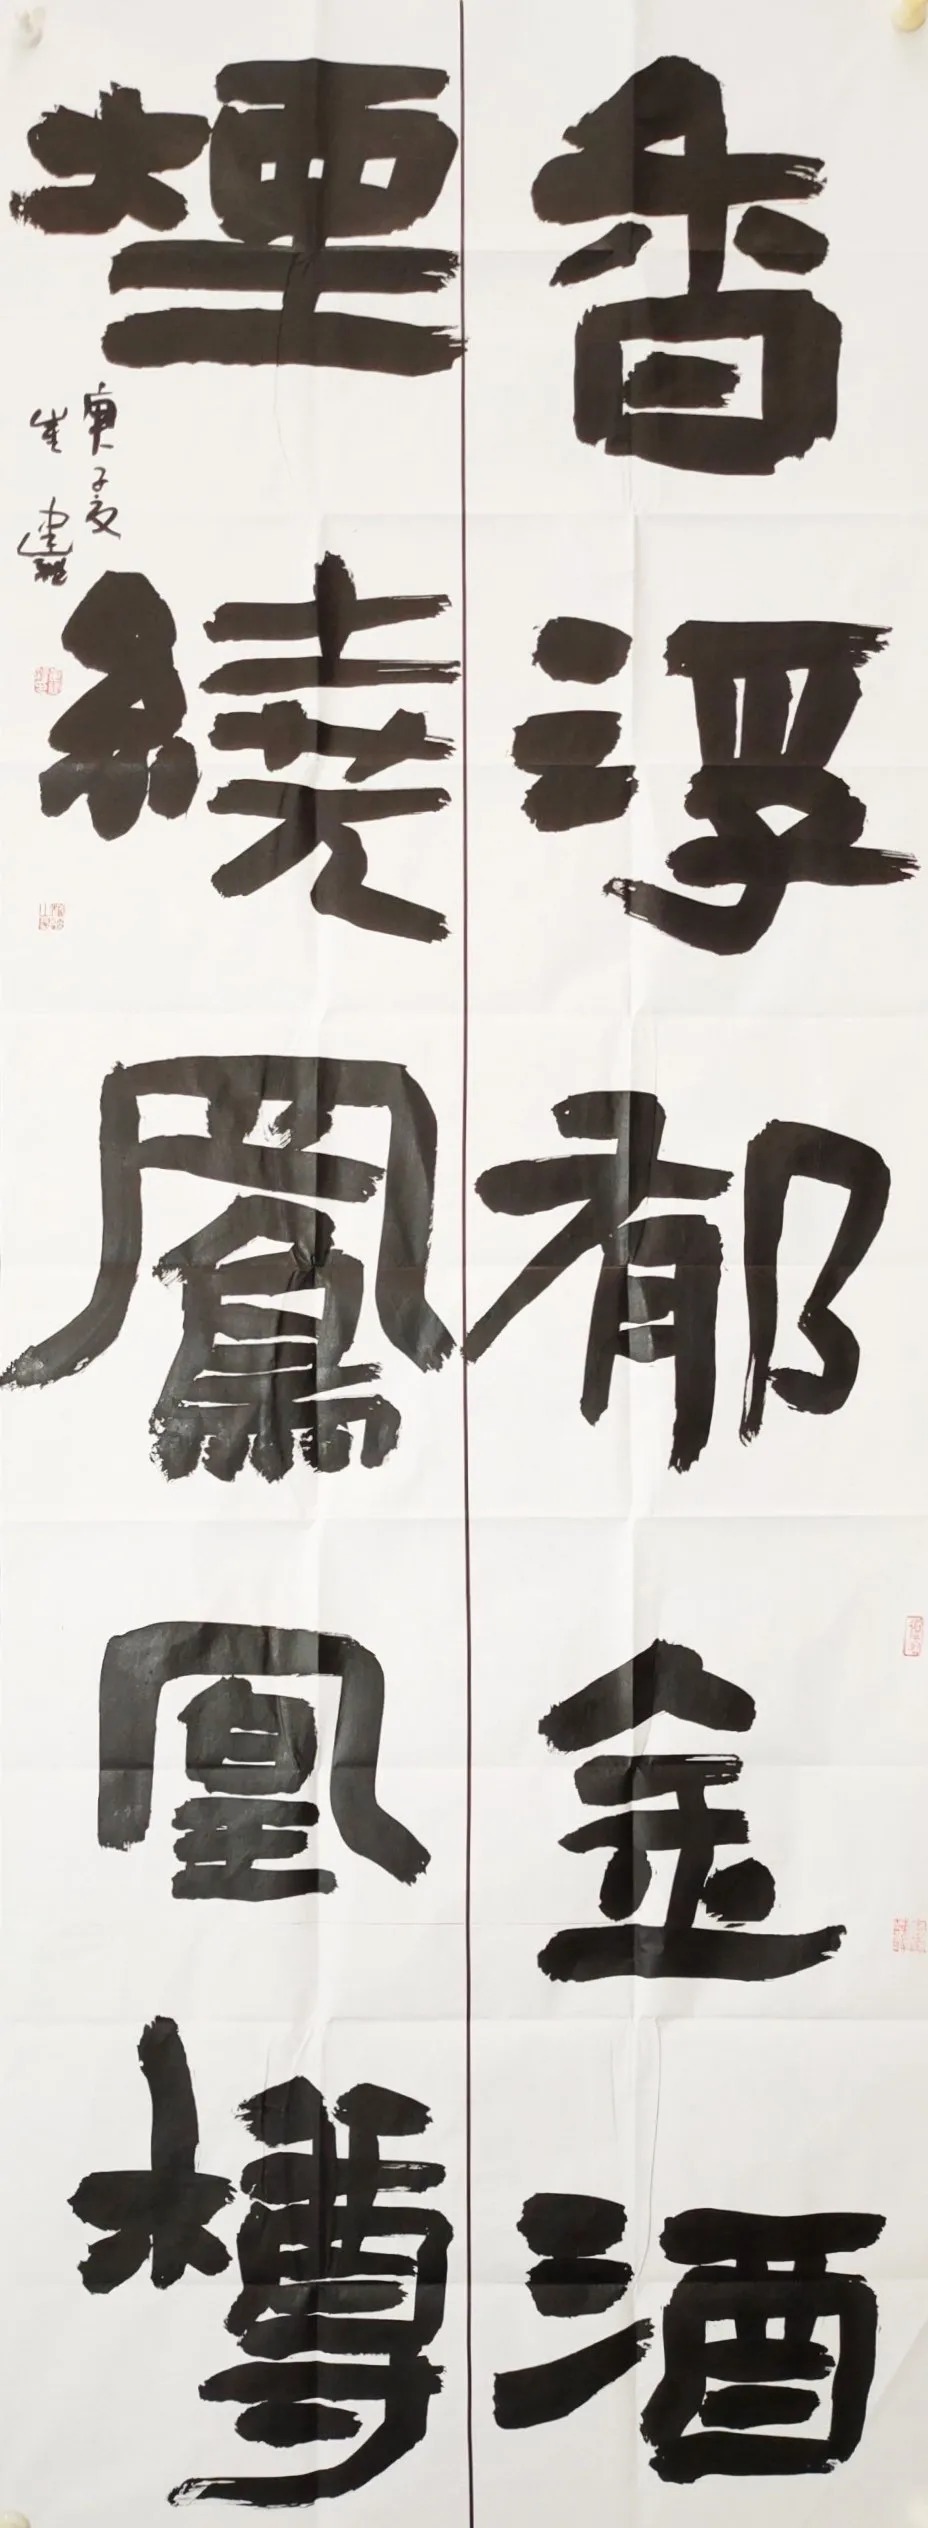 香浮郁金酒
煙繞鳳凰樽
庚子夏
崔建